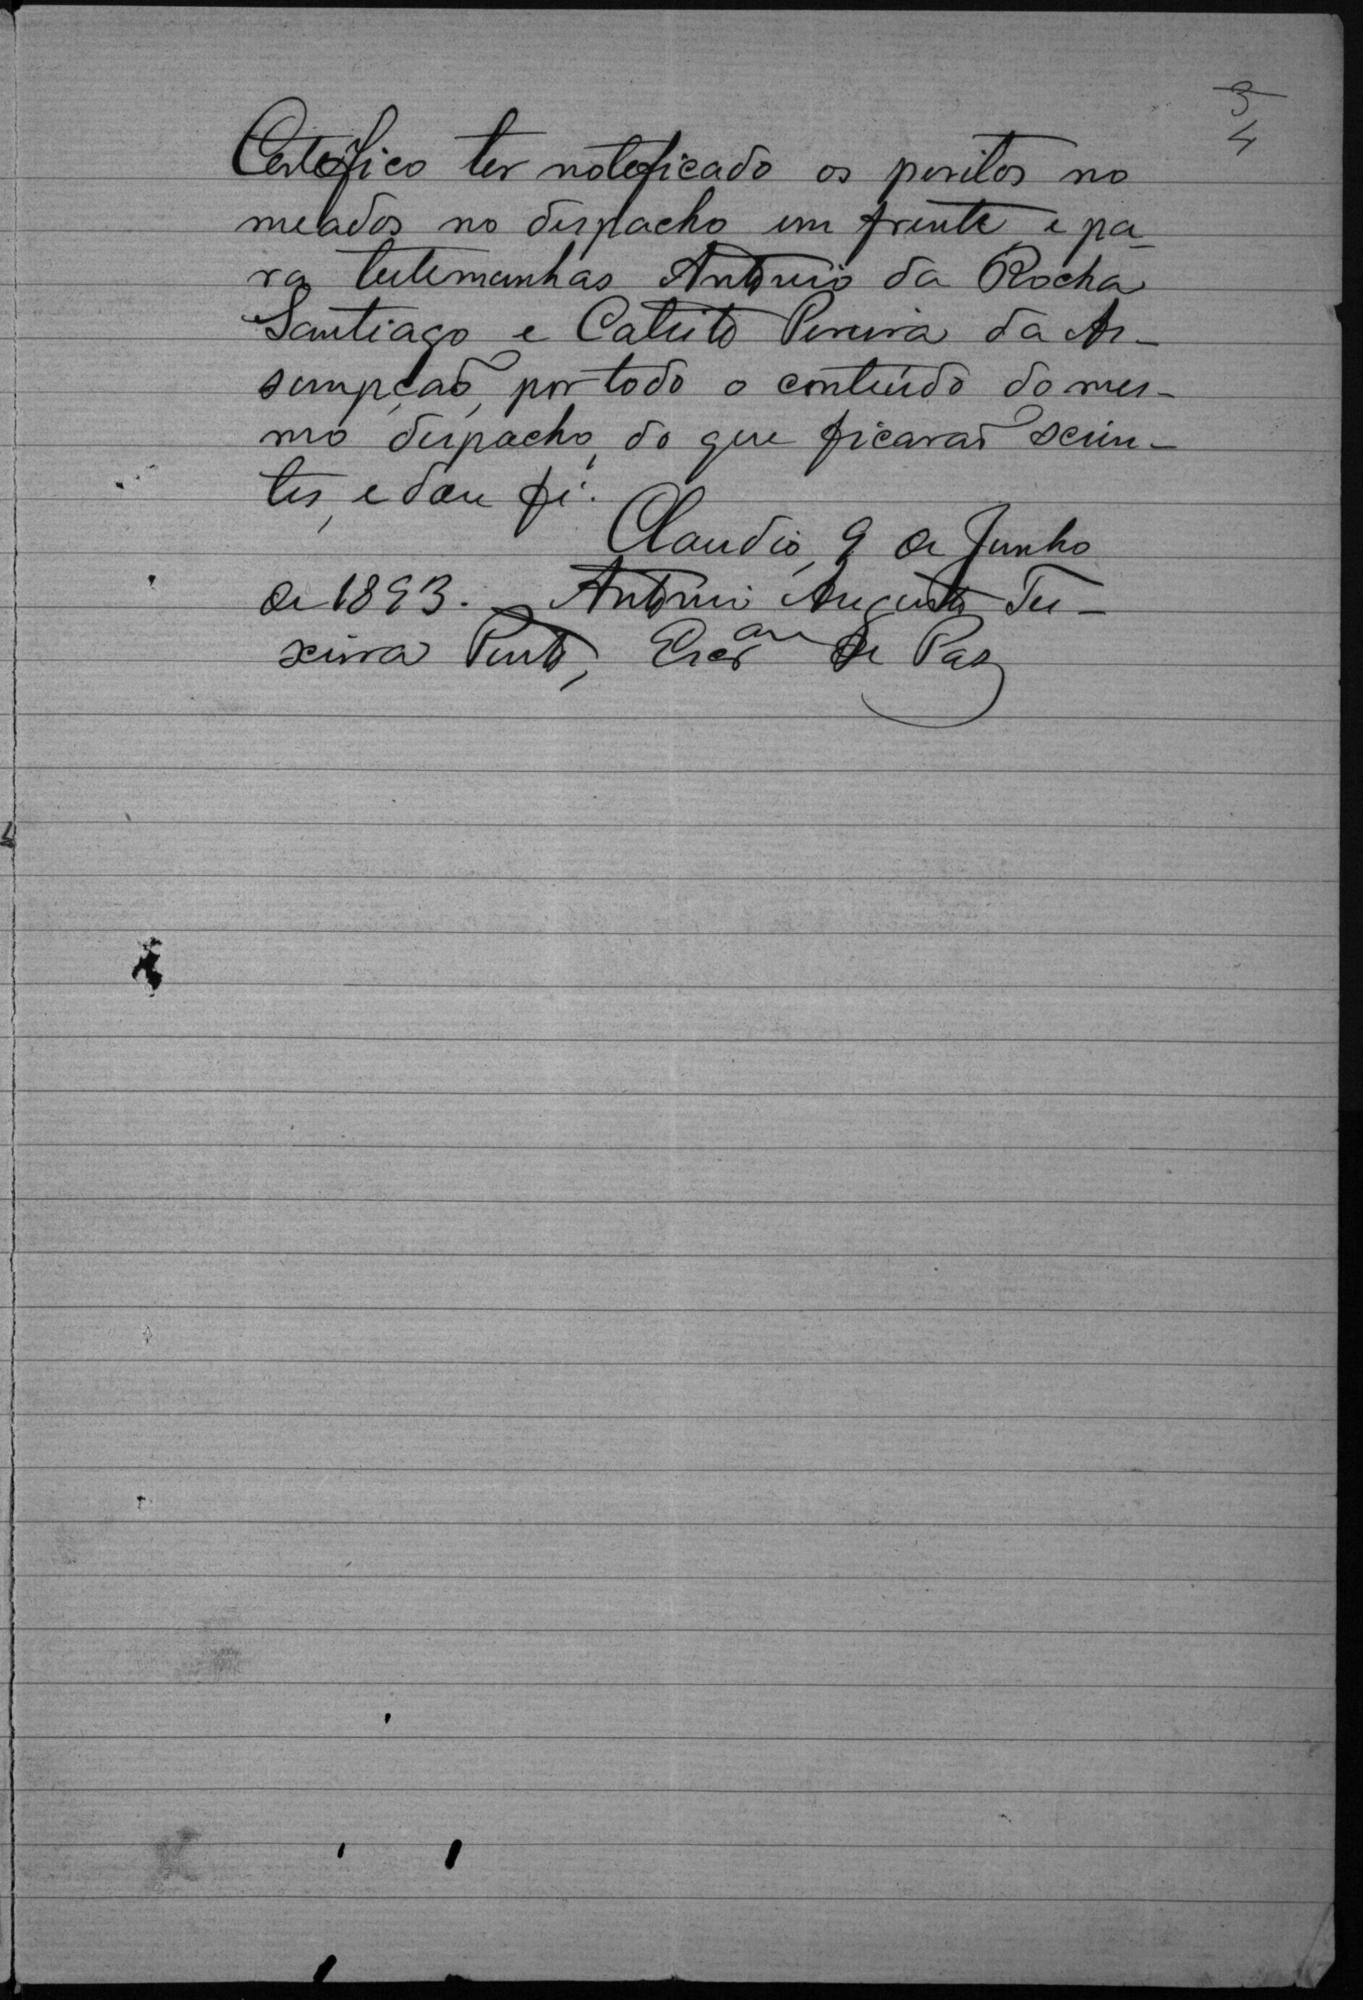 3
4
Certefico ter noteficado os peritos no
meados no despacho em frente, e pa-
ra testemunhas Antonio da Rocha
Santiago e Calisto Pereira da As-
sumpção, por todo o conteúdo do mes-
mo despacho, do que ficarão scien-
tes, e dou fé.
Claudio, 9 de Junho
de 1893. Antonio Augusto Tei-
xeira Pinto, Escram de Paz